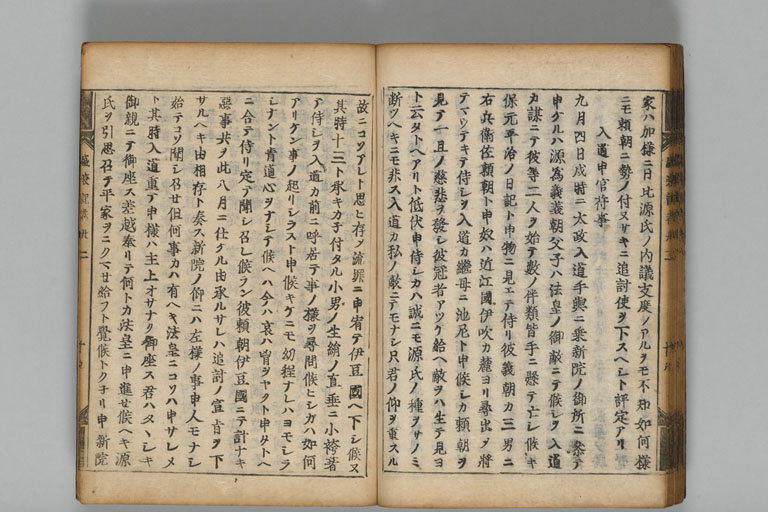 家ハ加様ニ日比源氏ノ内議支度ノアルヲモ不知如何様
ニモ頼朝ニ勢ノ付又サキニ追討使ヲ下スヘシト評定アリ
入道申官符事
九月四日戌時ニ太政入道手輿ニ乗新院ノ御所ニ参テ
申ケルハ源為義義朝父子ハ法皇ノ御敵ニテ候シヲ入道
カ謀ニテ彼等二人ヲ始テ数ノ伴類皆手ニ懸テ亡シ候キ
保元平治ノ日記ト申物ニ見エテ侍リ彼義朝カ三男ニ
右兵衛佐頼朝ト申奴ハ近江國伊吹カ麓ヨリ尋出テ将
テマウテキテ侍シヲ入道カ継母ニ池尼ト申候シカ頼朝ヲ
見テ一旦ノ慈悲ヲ發シ彼冠者アツケ給ヘ敵ヲハ生テ見ヨ
ト云タトヘアリト低伏申侍シカハ誠ニモ源氏ノ種ヲサノミ
断ツヘキニモ非ス入道カ私ノ敵ニテモナシ只君ノ仰ヲ重スル
故ニコソアレト思ヒ存メ流罪ニ申宥テ伊豆國ヘ下シ候又
其時十三ト承キカチ付タル小男ノ生絹ノ直垂ニ小袴著
テ侍シヲ入道カ前ニ呼居テ事ノ様ヲ尋問候ヒシカハ如何
アリケン事ノ起リシラスト申候キケニモ幼稚ナレハヨモシラ
シナント青道心ヲナシテ候ヘハ今ハ哀ハ胷ヲヤクト申タトヘ
ニ合テ侍リ定テ聞シ召レ候ラン彼頼朝伊豆國ニテ計ナキ
惡事共ヲ此八月ニ仕ケル由承ルサレハ追討ノ宣旨ヲ下
サルヘキ由相存ト奏ス新院ノ仰ニハ左様ノ事申人モナシ
始テコソ聞シ召セ但何事カハ有ヘキ法皇ニコソハ申サレメ
ト其時入道重テ申様ハ主上オサナク御座ス君ハタヽシキ
御親ニテ御座ス差越奉リテ何トカ法皇ニ申進セ候ヘキ源
氏ヲ引思召テ平家ヲニクマセ給フト覺候トクチリ申新院